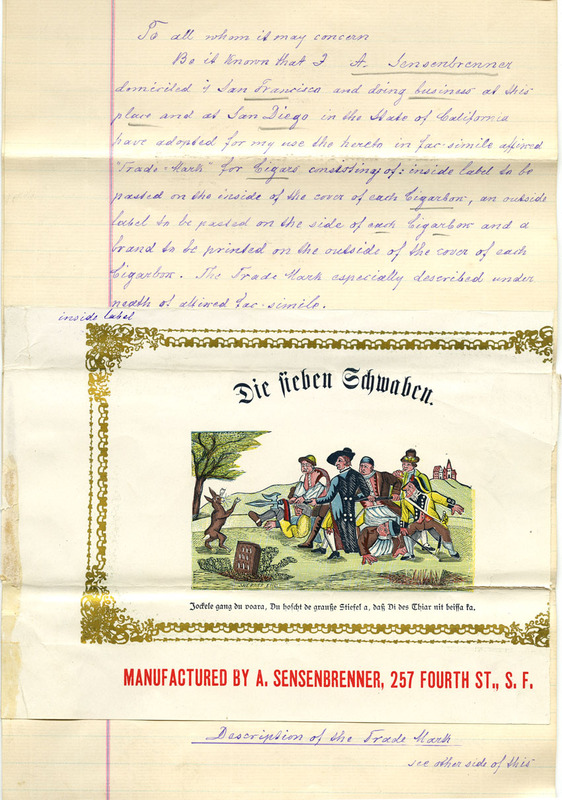 To all whom it may concern
Be it Known that I A. Sensenbrenner
domiciled of San Francisco and doing business at this
place and at San Diego in the State of California
have adopted for my use the hereto in fac-simile affixed
"Trade-Mark" for Cigars consisting of: inside label to be
pasted on the inside of the cover of each Cigarbox, an outside
label to be pasted on the side of each Cigarbox and a
brand to be printed on the outside of the cover of each
Cigarbox. The Trade Mark especially described under
neath of affixed fac-simile.
inside label
Die sieben Schwaben.
Jockele gang du voara, Du hoscht de grauße Stiefel a, daß Di des Thiar nit beissa ka.
MANUFACTURED BY A. SENSENBRENNER, 257 FOURTH ST., S. F.
Description of the Trade Mark
see other side of this